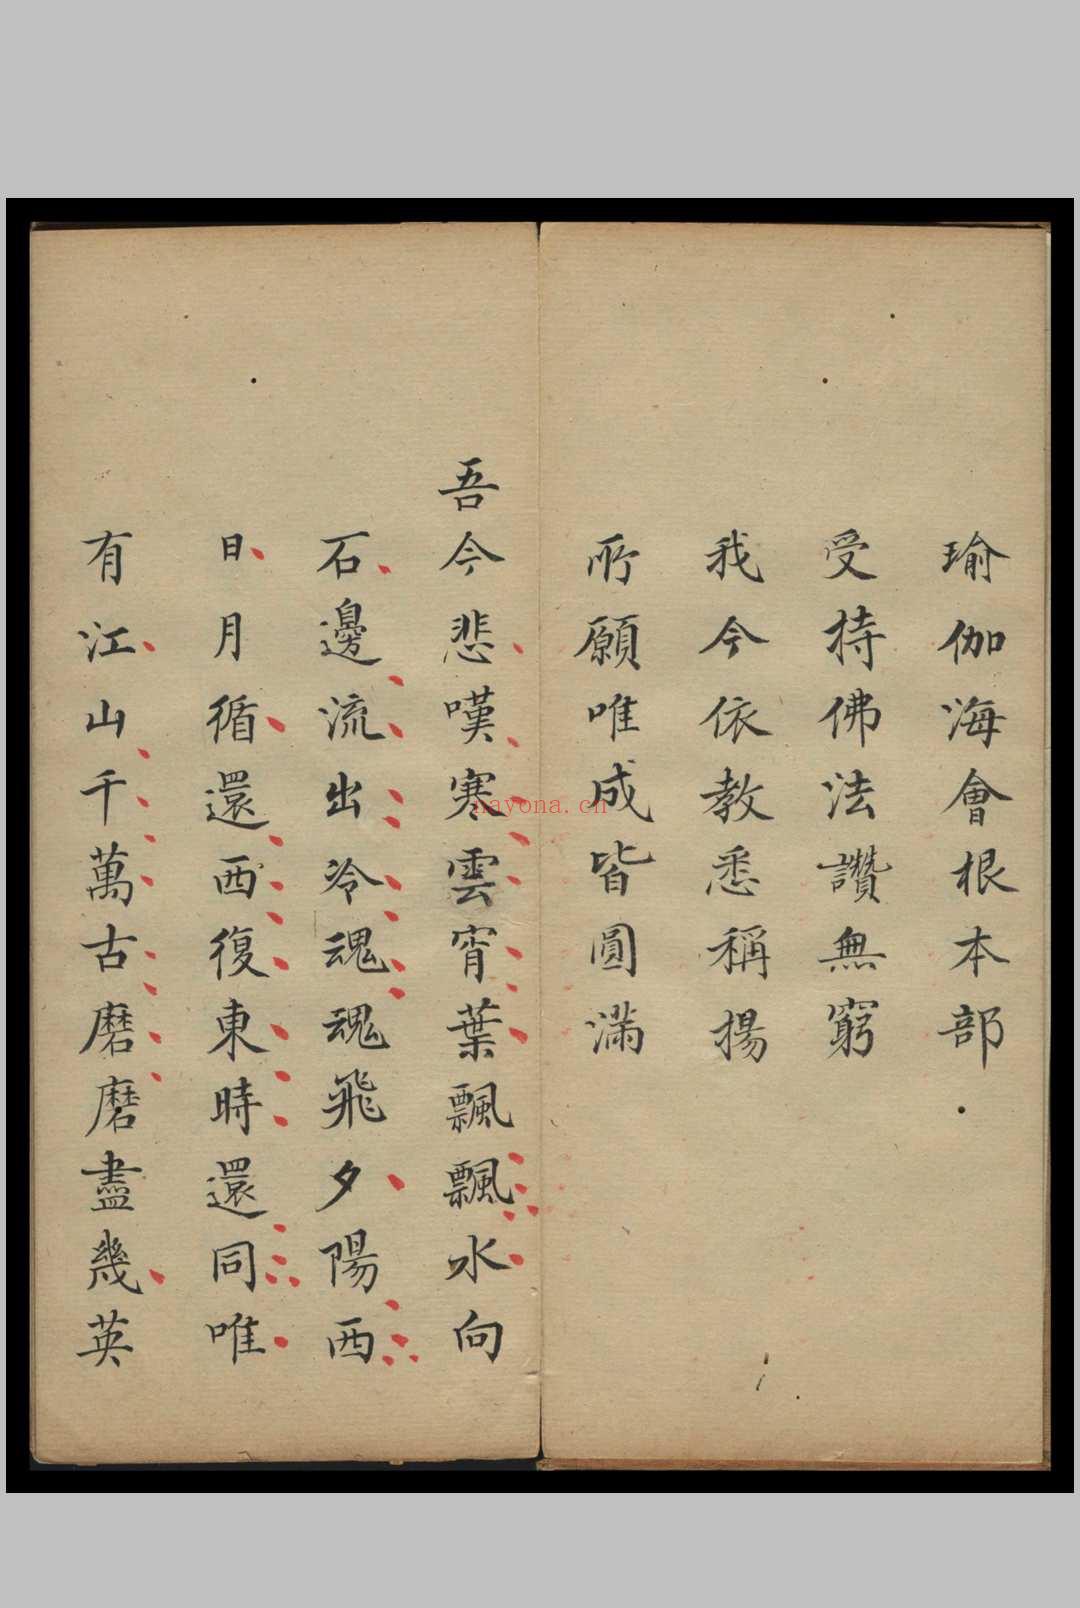 瑜伽海會根本部
受持佛法讚無窮
我今依教悉稱揚
所願唯成皆圓滿
吾今悲嘆寒雲宵葉飄飄水向
石邊流出冷魂魂飛夕陽西
日月循還西復東時還同唯
有江山千萬古磨磨盡幾英
nayona.cn